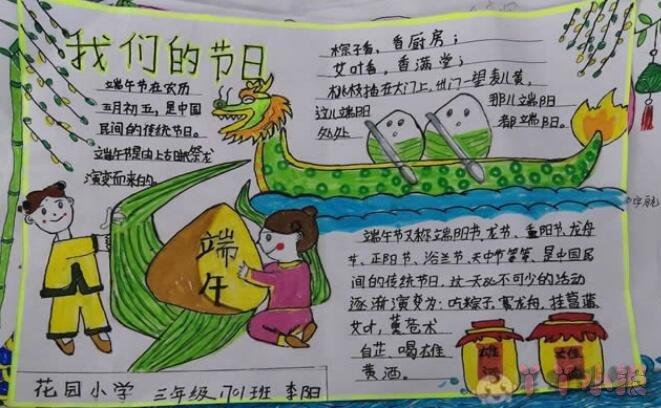 我们的节日
端午节在农历
五月初五，是中国
民间的传统节日。
端午节是由上古时祭龙
演变而来的
粽子香，香厨房；
艾叶香，香满堂；
桃枝插在大门上，出门一望麦儿黄，
这儿端阳
处处
那儿端阳
都端阳。
端午
端午节又称端阳节、龙节、重阳节、龙舟
节、正阳节、浴兰节、天中节等等，是中国民
间的传统节日，这一天必不可少的活动
逐渐演变为：吃粽子，赛龙舟，挂菖蒲
艾叶，薰苍术
白芷，喝雄
黄酒。
雄
酒
雄
花园小学 三年级1701班 李阳